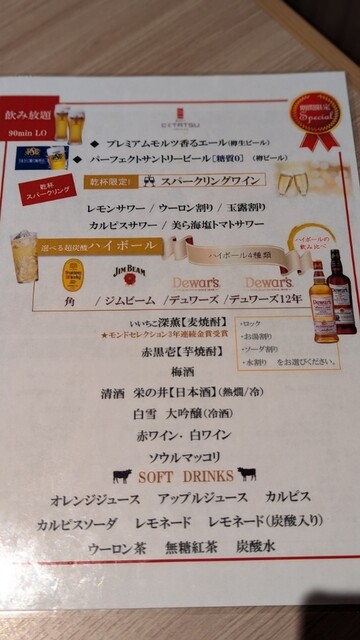 飲み放題
90min LO
期間限定
Special
EXTATSU
◆ プレミアムモルツ香るエール(樽生ビール)
◆ パーフェクトサントリービール[糖質0] (樽ビール)
乾杯
スパークリング
乾杯限定! スパークリングワイン
レモンサワー / ウーロン割り / 玉露割り
カルピスサワー / 美ら海塩トマトサワー
選べる超炭酸ハイボール
ハイボール4種類
ハイボールの
飲み比べ
JIM BEAM
Dewar's
Dewar's
角 / ジムビーム / デュワーズ / デュワーズ12年
いいちこ深薫【麦焼酎】
★モンドセレクション3年連続金賞受賞
赤黒壱【芋焼酎】
・ロック
・お湯割り
・ソーダ割り
・水割り をお選びください。
梅酒
清酒 栄の井【日本酒】(熱燗/冷)
白雪 大吟醸(冷酒)
赤ワイン・白ワイン
ソウルマッコリ
SOFT DRINKS
オレンジジュース アップルジュース カルピス
カルピスソーダ レモネード レモネード(炭酸入り)
ウーロン茶 無糖紅茶 炭酸水